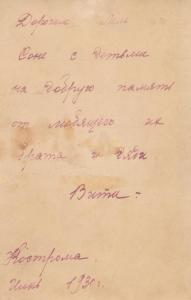 Дорогим Леле
Соне с детьми
на добрую память
от любящего их
брата и дяди
Вити –
Кострома.
Июнь 1930 г.